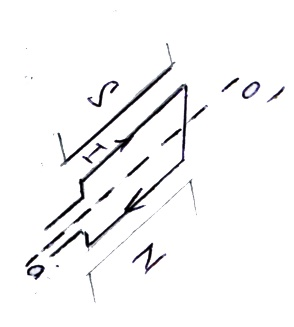 S
I
O'
N
O